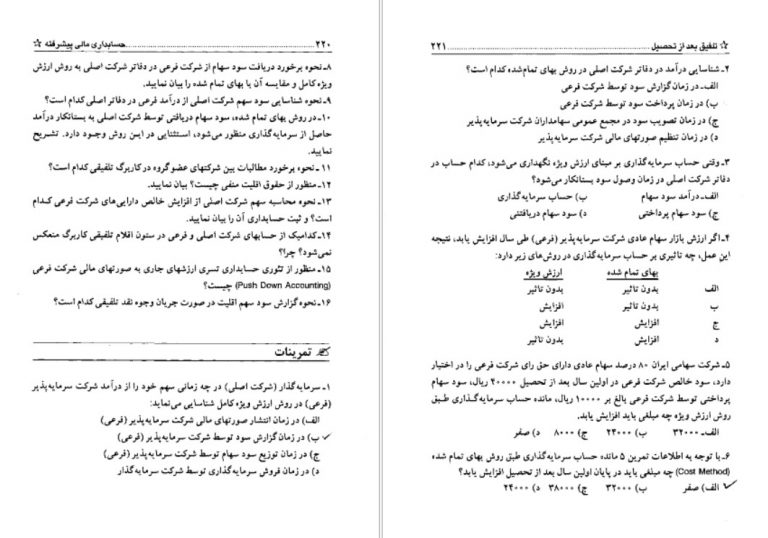 ۲۲۰ ............ حسابداری مالی پیشرفته ☆
۸ـ نحوه برخورد دریافت سود سهام از شرکت فرعی در دفاتر شرکت اصلی به روش ارزش
ویژه کامل و مقایسه آن با بهای تمام شده را بیان نمایید.
۹ـ نحوه شناسایی سود سهم شرکت اصلی از درآمد فرعی در دفاتر اصلی کدام است؟
۱۰ـ در روش بهای تمام شده، سود سهام دریافتی توسط شرکت اصلی به بستانکار درآمد
حاصل از سرمایه‌گذاری منظور می‌شود، استثنایی در این روش وجود دارد. تشریح
نمایید.
۱۱ـ نحوه برخورد مطالبات بین شرکتهای عضو گروه در کاربرگ تلفیقی کدام است؟
۱۲ـ منظور از حقوق اقلیت منفی چیست؟ بیان نمایید.
۱۳ـ نحوه محاسبه سهم شرکت اصلی از افزایش خالص دارایی‌های شرکت فرعی کدام
است؟ و ثبت حسابداری آن را بیان نمایید.
۱۴ـ کدامیک از حسابهای شرکت اصلی و فرعی در ستون اقلام تلفیقی کاربرگ منعکس
نمی‌شود؟ چرا؟
۱۵ـ منظور از تئوری حسابداری تسری ارزشهای جاری به صورتهای مالی شرکت فرعی
(Push Down Accounting) چیست؟
۱۶ـ نحوه گزارش سود سهم اقلیت در صورت جریان وجوه نقد تلفیقی کدام است؟
تمرینات
۱ـ سرمایه‌گذار (شرکت اصلی) در چه زمانی سهم خود را از درآمد شرکت سرمایه‌پذیر
(فرعی) در روش ارزش ویژه کامل شناسایی می‌نماید:
الف) در زمان انتشار صورتهای مالی شرکت سرمایه‌پذیر (فرعی)
✓ ب) در زمان گزارش سود توسط شرکت سرمایه‌پذیر (فرعی)
ج) در زمان توزیع سود سهام توسط شرکت سرمایه‌پذیر (فرعی)
د) در زمان فروش سرمایه‌گذاری توسط شرکت سرمایه‌گذار
☆ تلفیق بعد از تحصیل ............ ۲۲۱
۲ـ شناسایی درآمد در دفاتر شرکت اصلی در روش بهای تمام‌شده کدام است؟
الف ـ در زمان گزارش سود توسط شرکت فرعی
ب) در زمان پرداخت سود توسط شرکت فرعی
ج) در زمان تصویب سود در مجمع عمومی سهامداران شرکت سرمایه‌پذیر
د) در زمان تنظیم صورتهای مالی شرکت سرمایه‌پذیر
۳ـ وقتی حساب سرمایه‌گذاری بر مبنای ارزش ویژه نگهداری می‌شود، کدام حساب در
دفاتر شرکت اصلی در زمان وصول سود بستانکار می‌شود؟
الف ـ درآمد سود سهام ب) حساب سرمایه‌گذاری
ج) سود سهام پرداختی د) سود سهام دریافتنی
۴ـ اگر ارزش بازار سهام عادی شرکت سرمایه‌پذیر (فرعی) طی سال افزایش یابد، نتیجه
این عمل، چه تاثیری بر حساب سرمایه‌گذاری در روش‌های زیر دارد:
بهای تمام شده ارزش ویژه
الف بدون تاثیر بدون تاثیر
ب بدون تاثیر افزایش
ج افزایش افزایش
د افزایش بدون تاثیر
۵ـ شرکت سهامی ایران ۸۰ درصد سهام عادی دارای حق رای شرکت فرعی را در اختیار
دارد، سود خالص شرکت فرعی در اولین سال بعد از تحصیل ۴۰۰۰۰ ریال، سود سهام
پرداختی توسط شرکت فرعی بالغ بر ۱۰۰۰۰ ریال، مانده حساب سرمایه‌گذاری طبق
روش ارزش ویژه چه مبلغی باید افزایش یابد.
الف ـ ۳۲۰۰۰ ب) ۲۴۰۰۰ ج) ۸۰۰۰ د) صفر
۶ـ با توجه به اطلاعات تمرین ۵ مانده حساب سرمایه‌گذاری طبق روش بهای تمام شده
(Cost Method) چه مبلغی باید در پایان اولین سال بعد از تحصیل افزایش یابد؟
✓ الف) صفر ب) ۳۲۰۰۰ ج) ۳۸۰۰۰ د) ۲۴۰۰۰